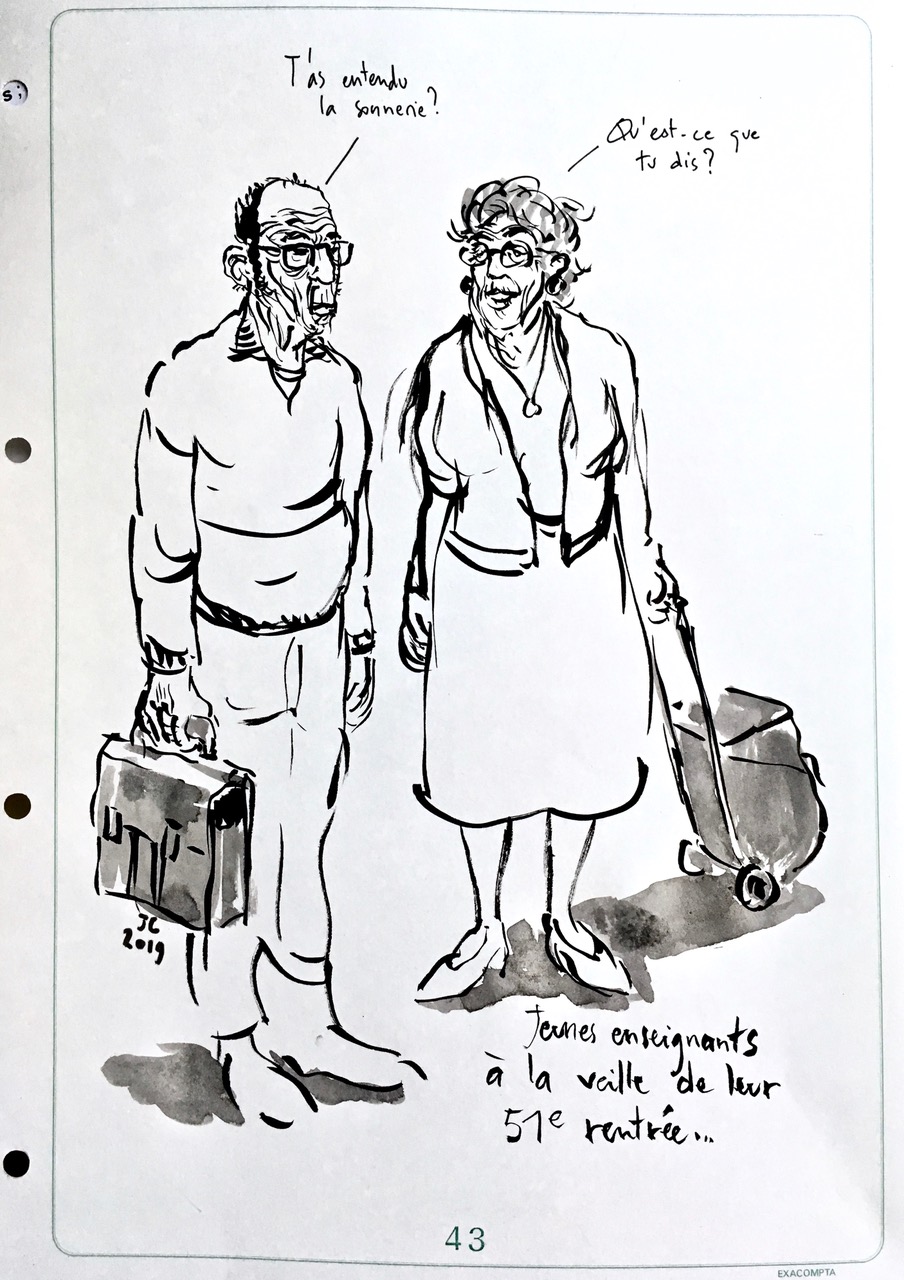 T'as entendu
la sonnerie?
Qu'est-ce que
tu dis?
JC
2019
Jeunes enseignants
à la veille de leur
51e rentrée...
43
EXACOMPTA